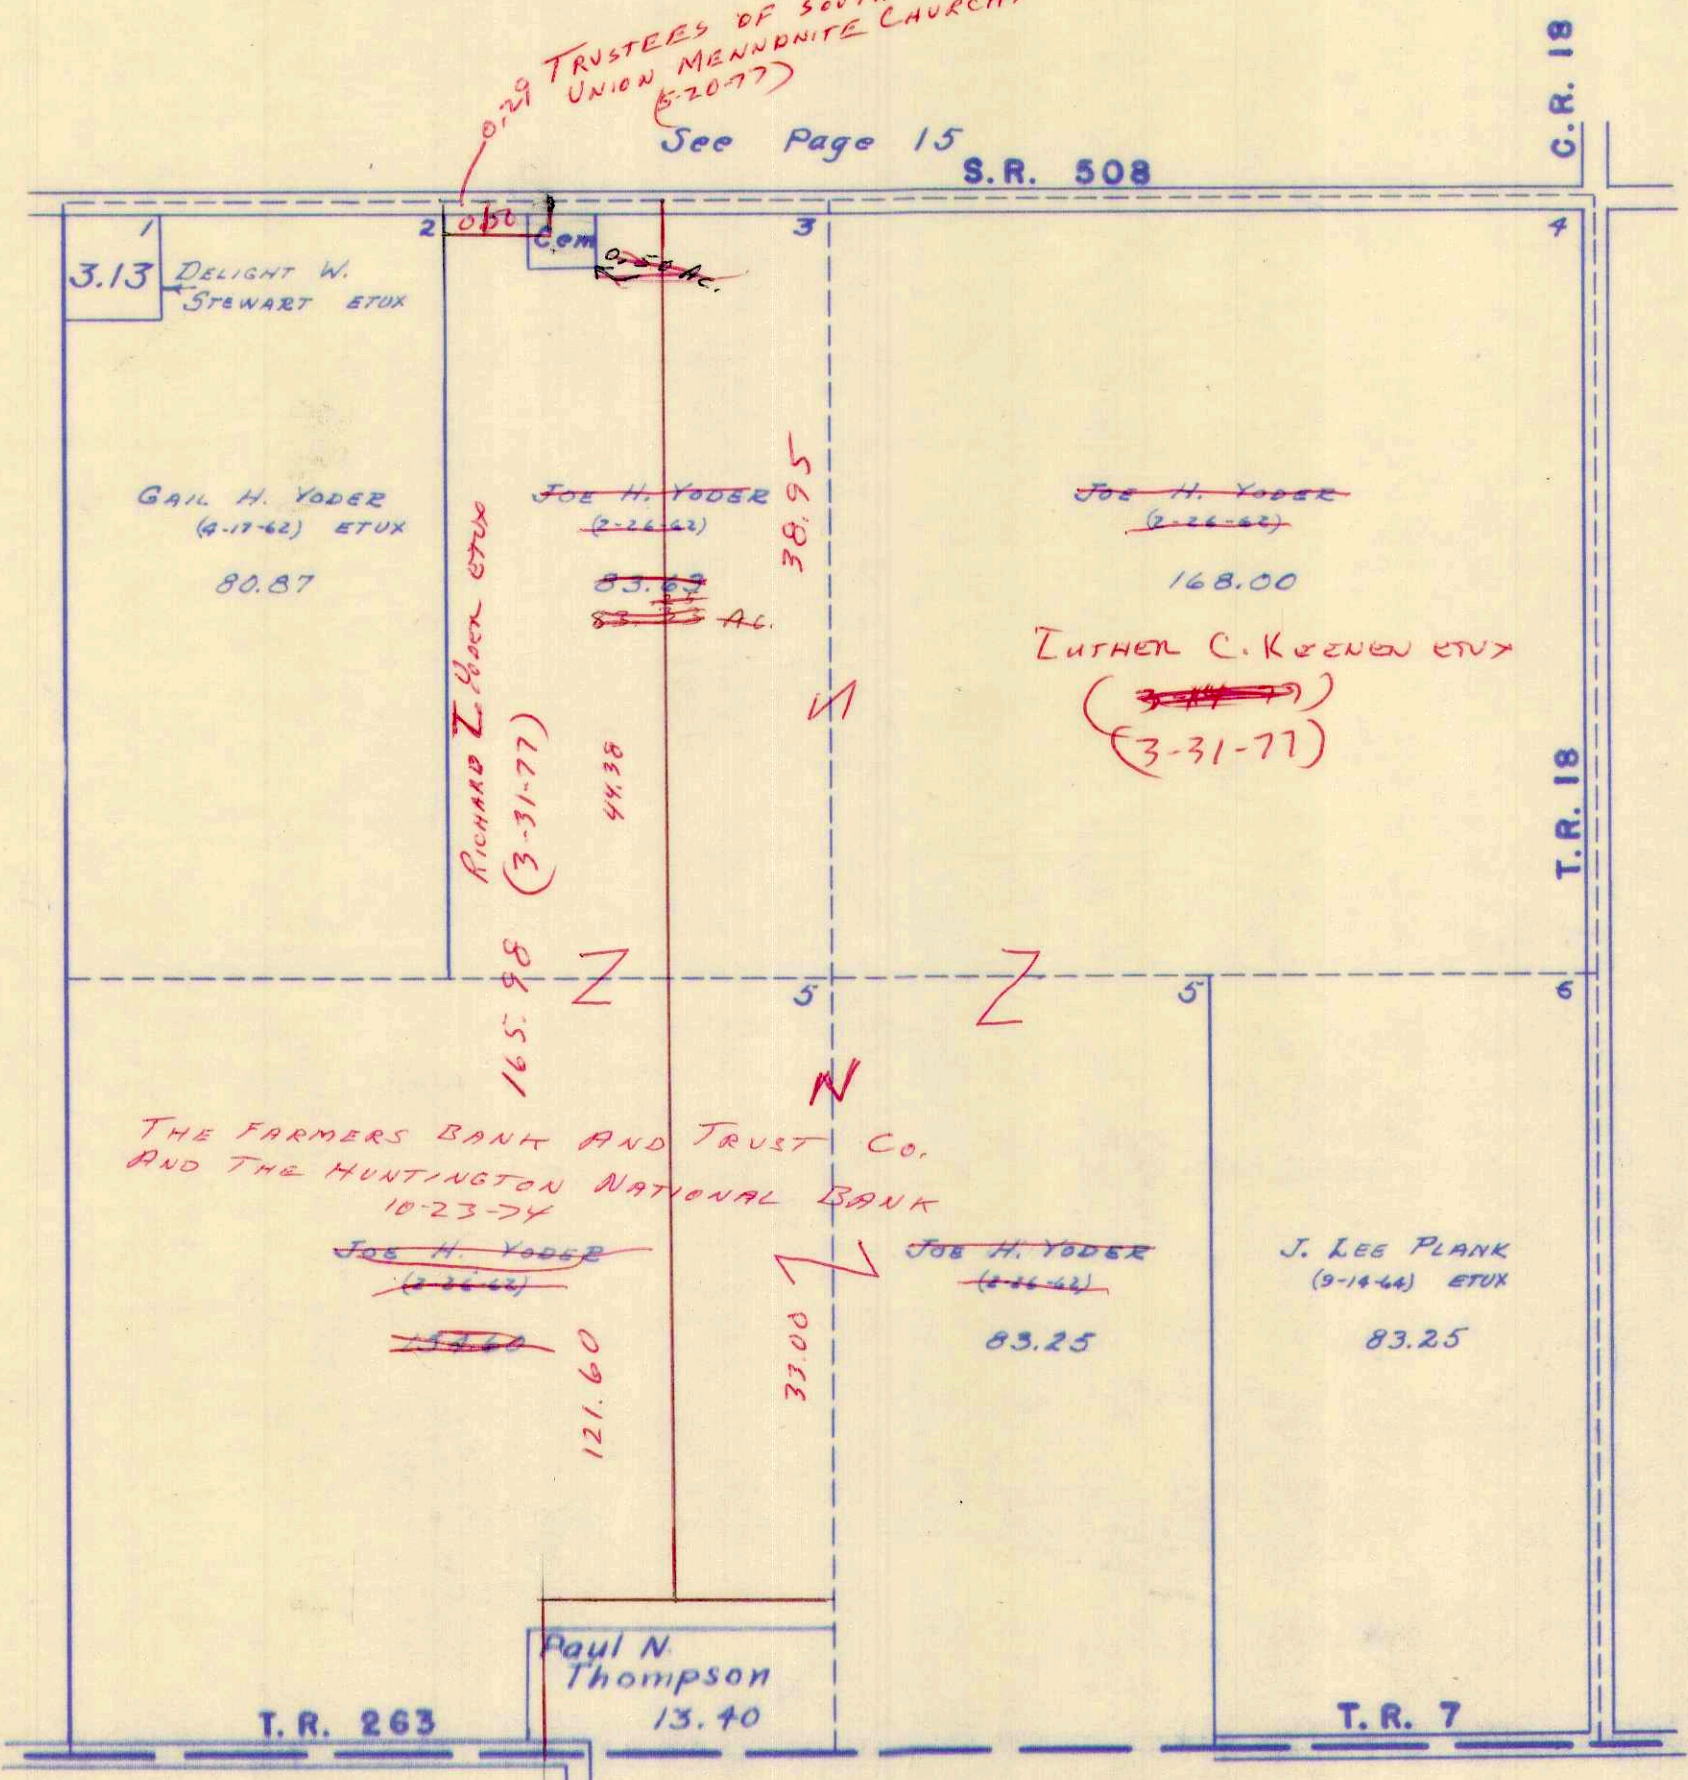 0.29
TRUSTEES OF
UNION MENNONITE CHURCH
(5-20-77)
See Page 15
S.R. 508
C.R. 18
1
2
0.50
Cem
3
4
3.13
DELIGHT W.
STEWART ETUX
0.50 Ac.
GAIL H. YODER
(4-17-62) ETUX
80.87
RICHARD I. YODER ETUX
(3-31-77)
165.98
JOE H. YODER
(2-26-62)
83.63
Ac.
38.95
44.38
JOE H. YODER
(2-26-62)
168.00
LUTHER C. KEENEN ETUX
(3-31-77)
T.R. 18
5
5
6
THE FARMERS BANK AND TRUST CO.
AND THE HUNTINGTON NATIONAL BANK
10-23-74
JOE H. YODER
(2-26-62)
154.60
121.60
33.00
JOE H. YODER
(2-26-62)
83.25
J. LEE PLANK
(9-14-64) ETUX
83.25
Paul N.
Thompson
13.40
T.R. 263
T.R. 7